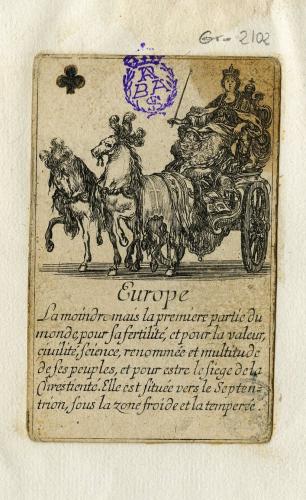 Gr - 2102
R
BA
G
Europe
La moindre mais la premiere partie du
monde, pour sa fertilité, et pour la valeur,
ciuilité, science, renommée et multitude
de ses peuples, et pour estre le siege de la
Chrestienté. Elle est située vers le Septen-
trion, sous la zone froide et la temperée.